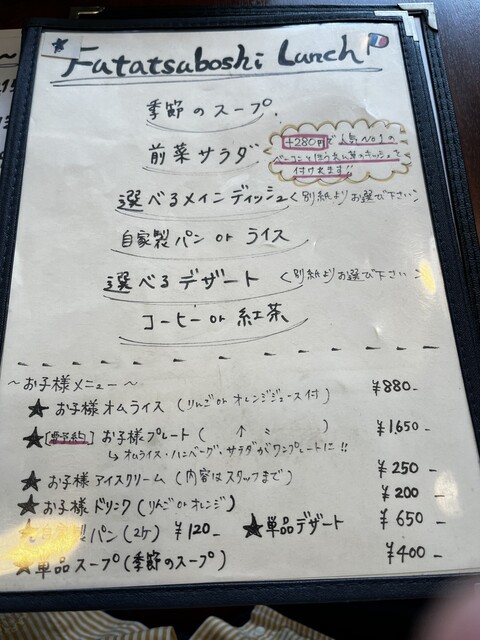 Fatatsuboshi Lunch
季節のスープ
前菜サラダ
+280円で人気No1の
ベーコンとほうれん草のキッシュを
付けれます!!
選べるメインディッシュ〈別紙よりお選び下さい〉
自家製パン or ライス
選べるデザート〈別紙よりお選び下さい〉
コーヒー or 紅茶
〜お子様メニュー〜
★ お子様オムライス (りんご or オレンジジュース付) ¥880-
★[要予約] お子様プレート ( 〃 ) ¥1,650-
↳ オムライス・ハンバーグ・サラダがワンプレートに!!
★ お子様アイスクリーム (内容はスタッフまで) ¥250-
★ お子様ドリンク (りんご or オレンジ) ¥200-
製パン (2ケ) ¥120- ★単品デザート ¥650-
★単品スープ (季節のスープ) ¥400-